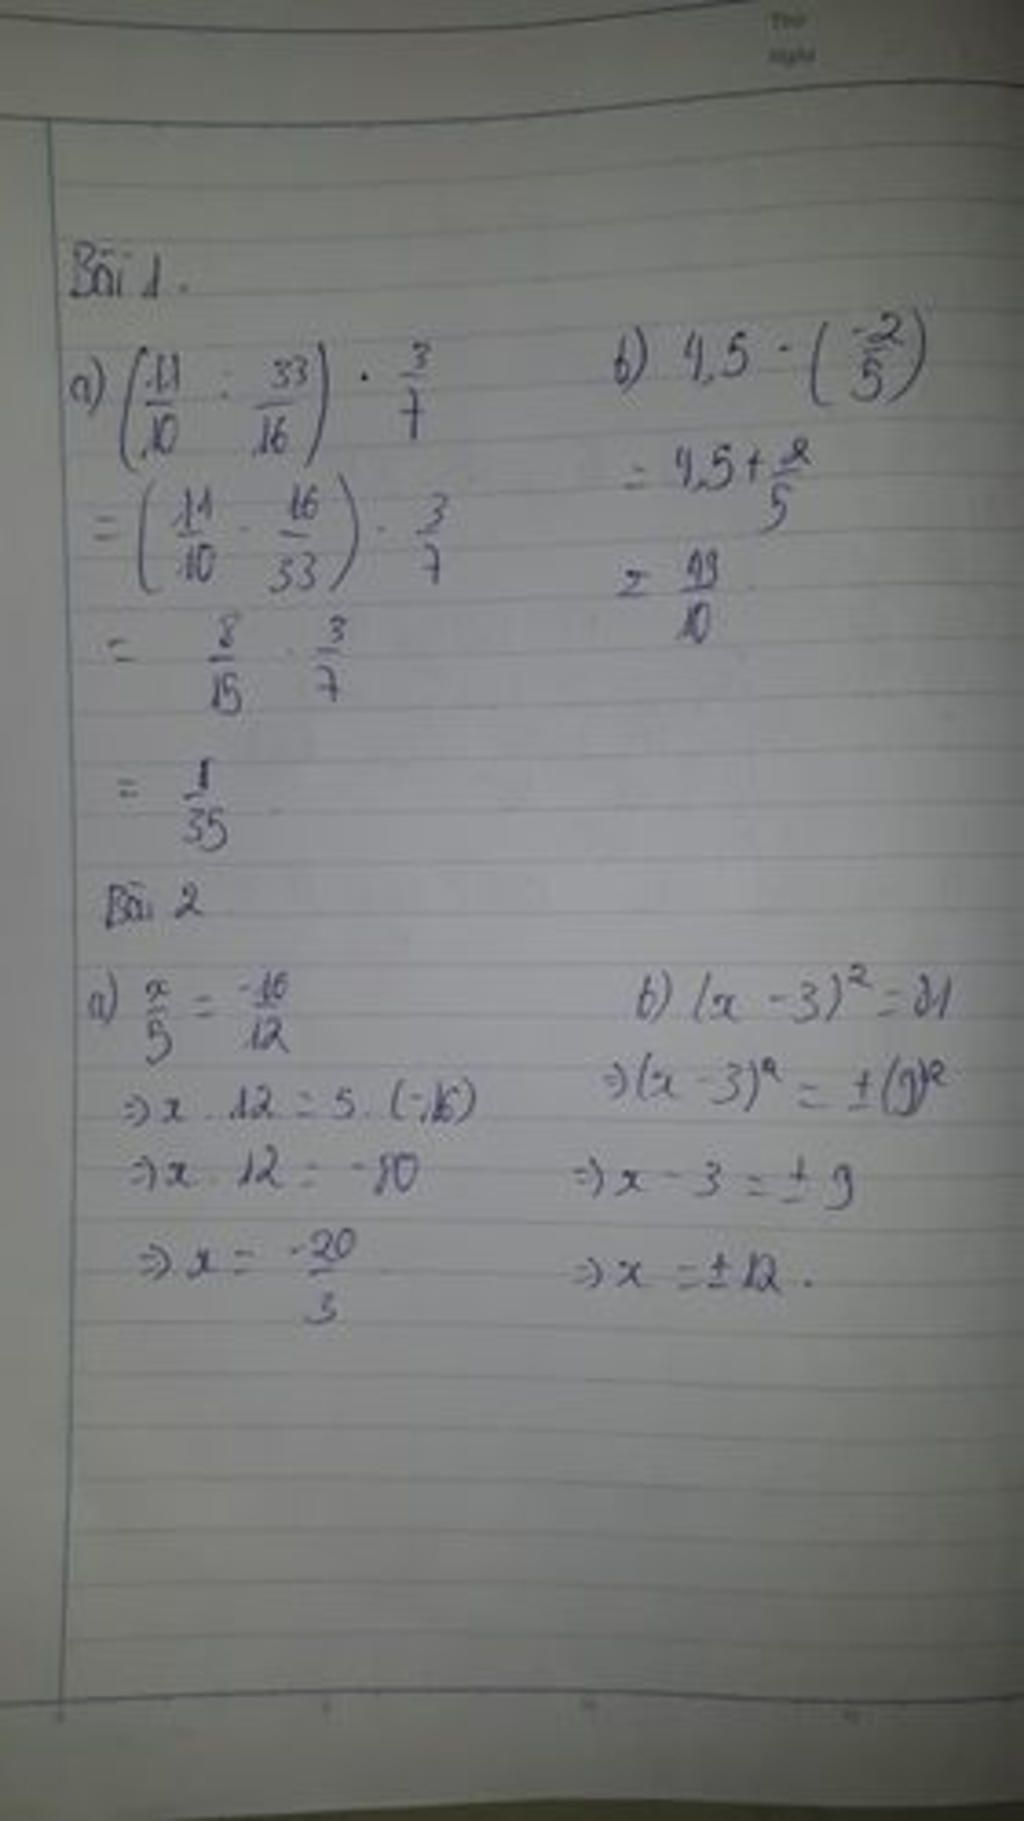 Bài 1.
a) (11/10 : 33/16) · 3/7
= (11/10 · 16/33) · 3/7
= 8/15 · 3/7
= 1/35
b) 4,5 - (-2/5)
= 4,5 + 2/5
= 49/10
Bài 2
a) x/5 = -16/12
=> x . 12 = 5 . (-16)
=> x . 12 = -80
=> x = -20/3
b) (x - 3)² = 81
=> (x - 3)² = ±(9)²
=> x - 3 = ± 9
=> x = ± 12 .